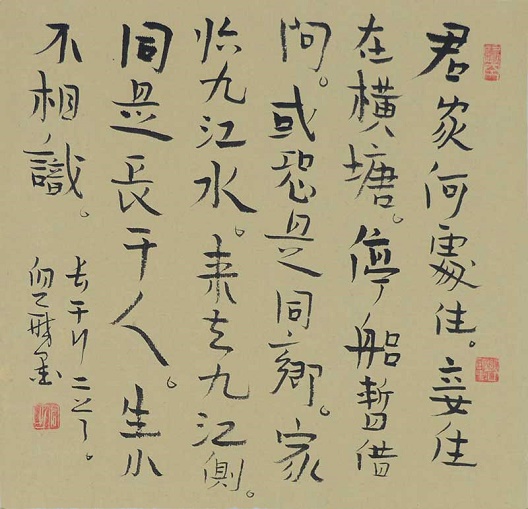 君家何處住。妾住
在橫塘。停船暫借
問。或恐是同鄉。家
临九江水。来去九江側。
同是長干人。生小
不相識。
长干行二